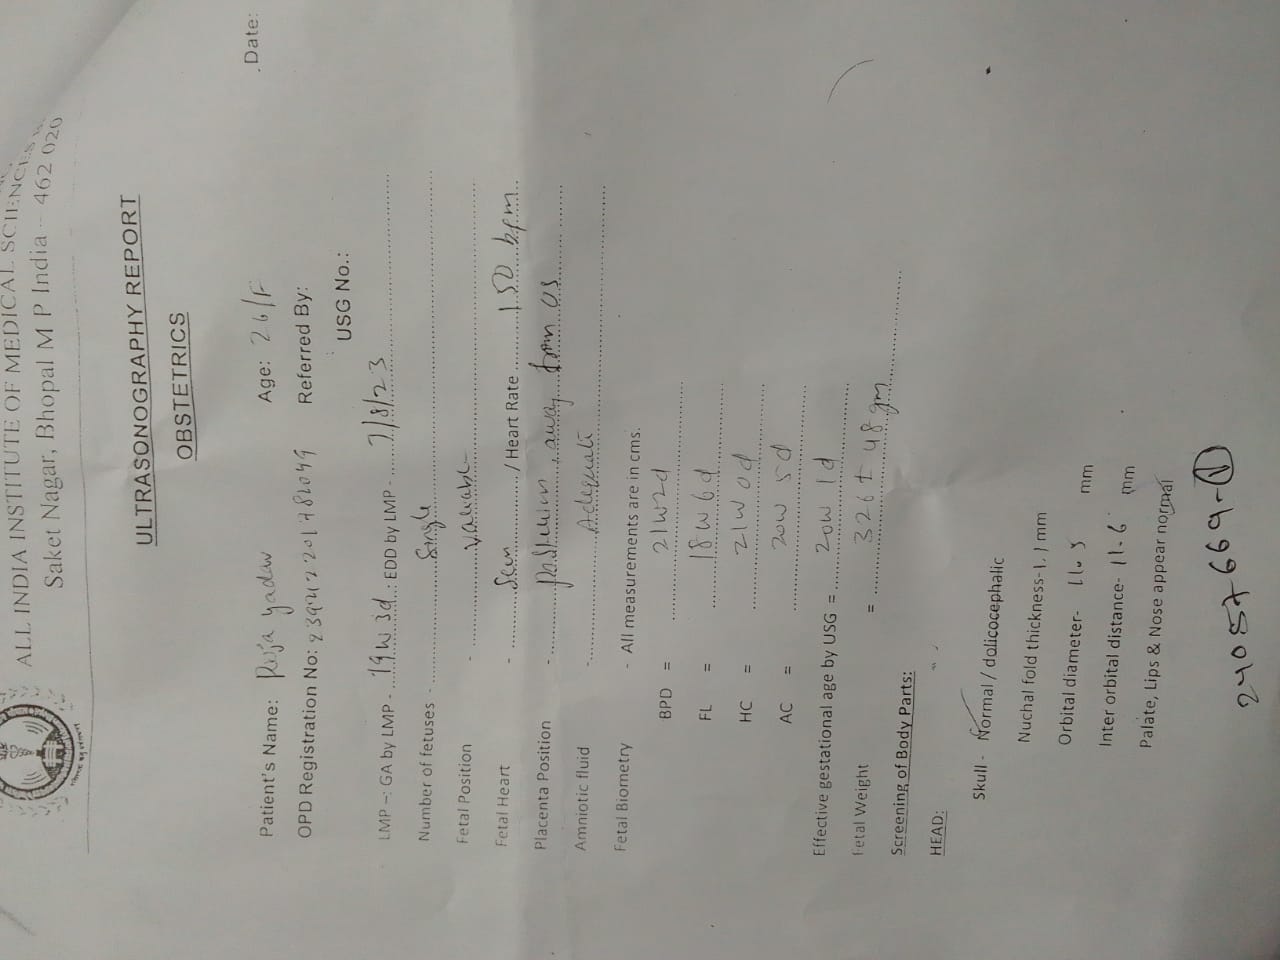 ALL INDIA INSTITUTE OF MEDICAL SCIENCES
Saket Nagar, Bhopal M P India - 462 020
ULTRASONOGRAPHY REPORT
OBSTETRICS
Date:
Patient's Name: Puja Yadav Age: 26/F
OPD Registration No: Referred By:
USG No.:
LMP -: GA by LMP - 19w 3d : EDD by LMP - 7/8/23
Number of fetuses - Single
Fetal Position - Variable
Fetal Heart - Seen / Heart Rate 150 b.p.m
Placenta Position - away from OS
Amniotic fluid - Adequate
Fetal Biometry - All measurements are in cms.
BPD = 21w2d
FL = 18w6d
HC = 21w0d
AC = 20w 5d
Effective gestational age by USG = 20w 1d
Fetal Weight = 326 ± 48 gm
Screening of Body Parts:
HEAD:
Skull - Normal / dolicocephalic
Nuchal fold thickness-1.1 mm
Orbital diameter- 11.5 mm
Inter orbital distance- 11.6 mm
Palate, Lips & Nose appear normal
24057669-1